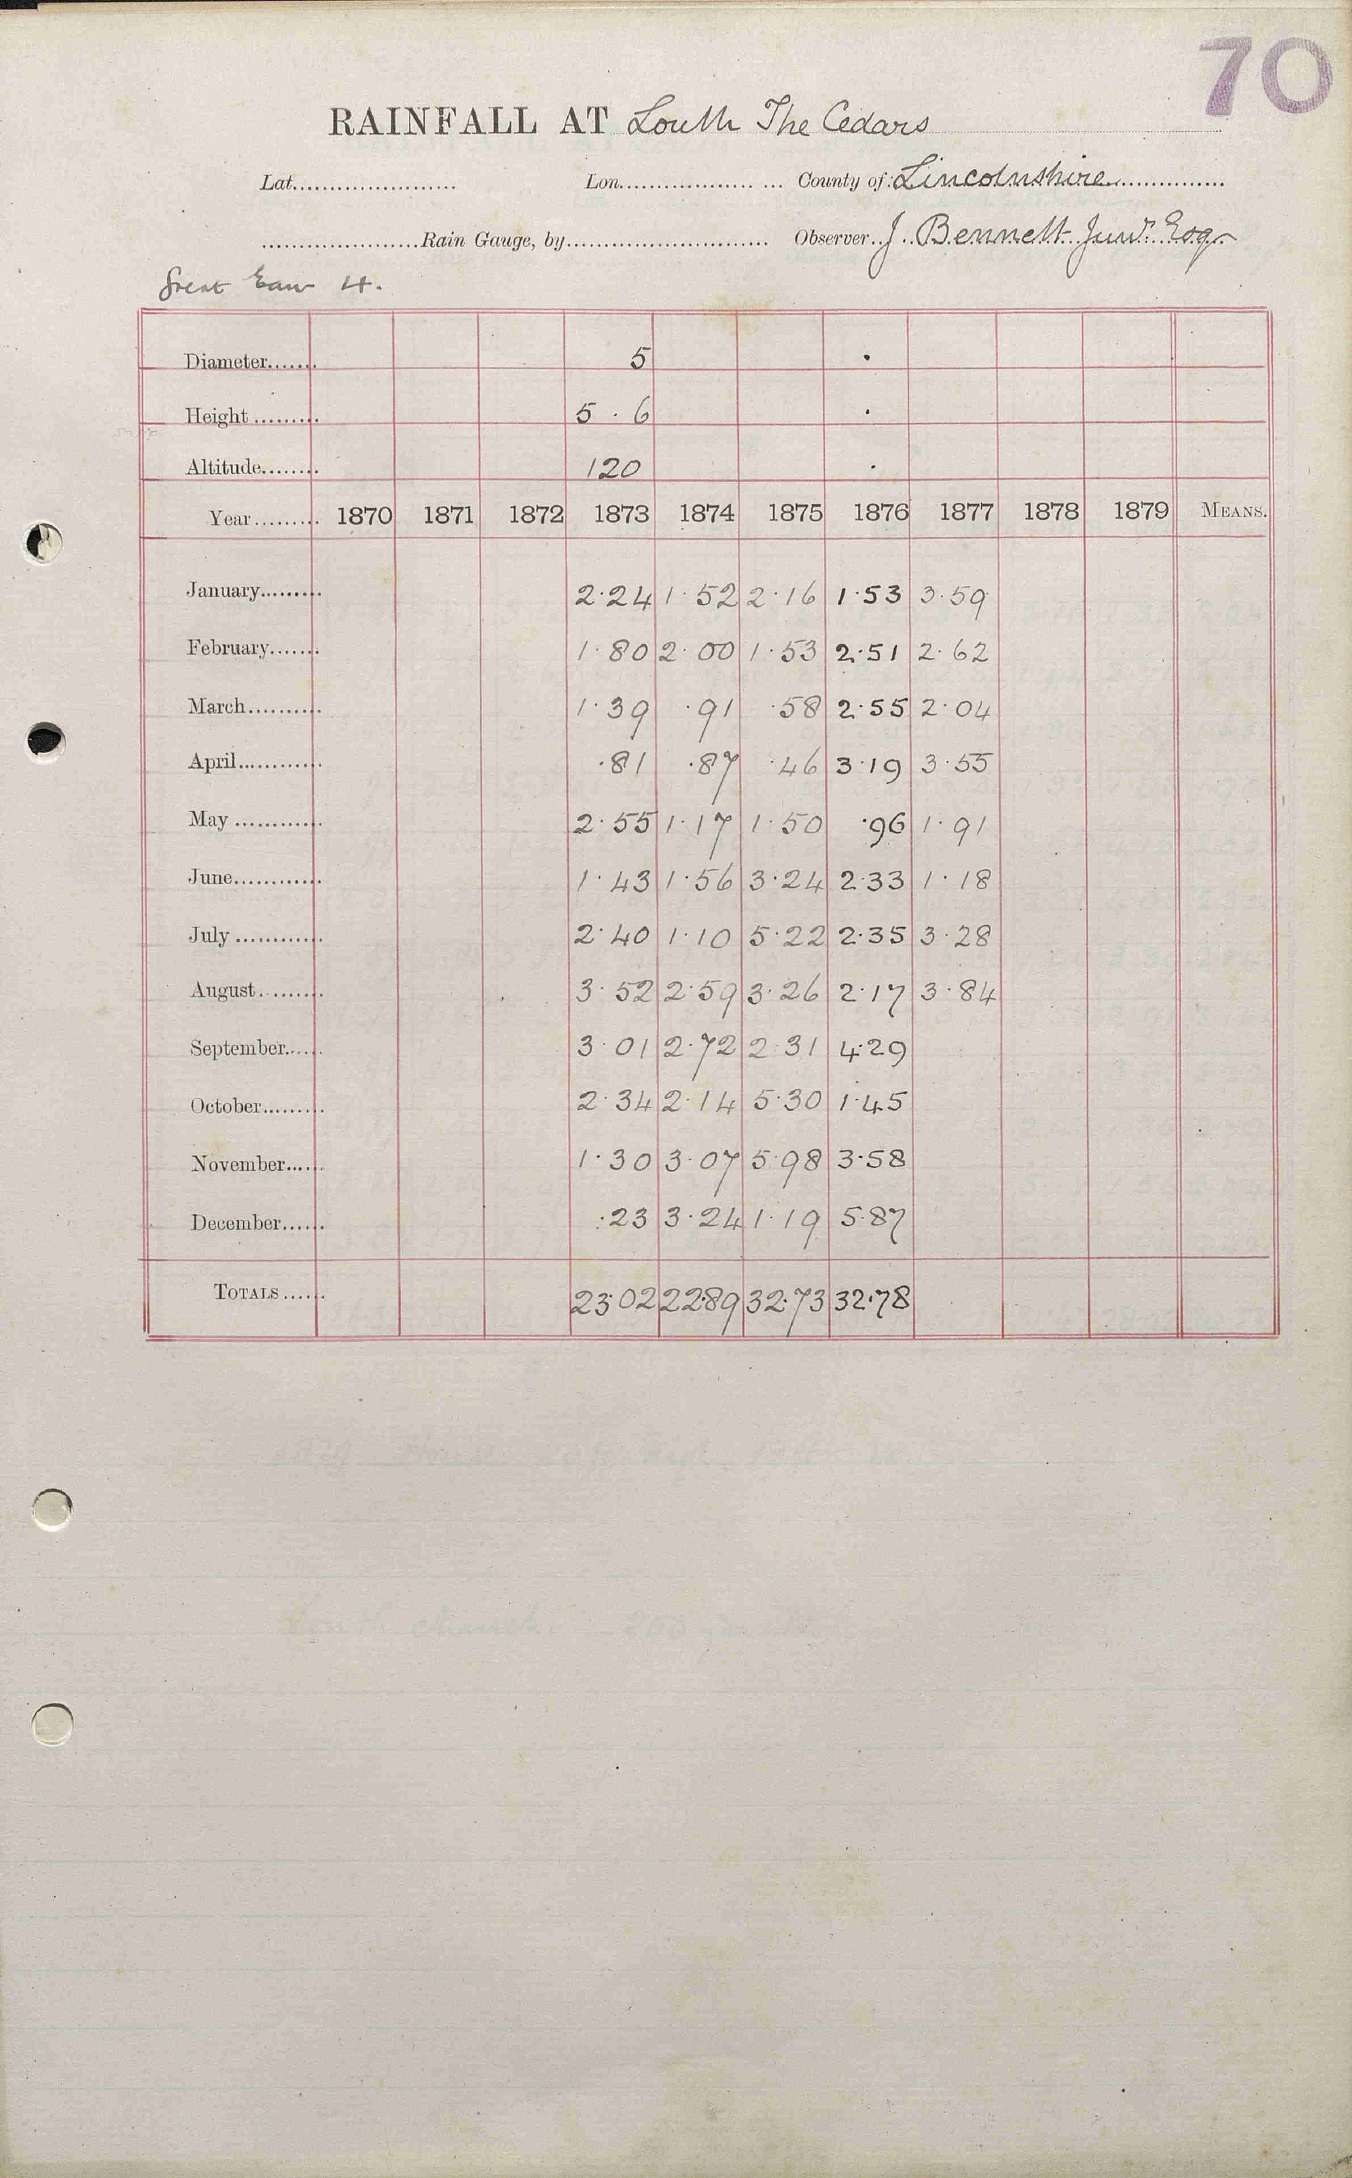 70
RAINFALL AT Louth The Cedars
Lat...................... Lon..................... County of Lincolnshire
.....................Rain Gauge, by........................... Observer J. Bennett Junr. Esq
Great Eau 4.
Diameter....... 5 ·
Height ......... 5 · 6 ·
Altitude........ 120 ·
Year......... 1870 1871 1872 1873 1874 1875 1876 1877 1878 1879 MEANS.
January......... 2·24 1·52 2·16 1·53 3·59
February....... 1·80 2·00 1·53 2·51 2·62
March.......... 1·39 ·91 ·58 2·55 2·04
April............ ·81 ·87 ·46 3·19 3·55
May ............ 2·55 1·17 1·50 ·96 1·91
June............ 1·43 1·56 3·24 2·33 1·18
July ............ 2·40 1·10 5·22 2·35 3·28
August......... 3·52 2·59 3·26 2·17 3·84
September...... 3·01 2·72 2·31 4·29
October......... 2·34 2·14 5·30 1·45
November...... 1·30 3·07 5·98 3·58
December...... ·23 3·24 1·19 5·87
TOTALS...... 23·02 22·89 32·73 32·78